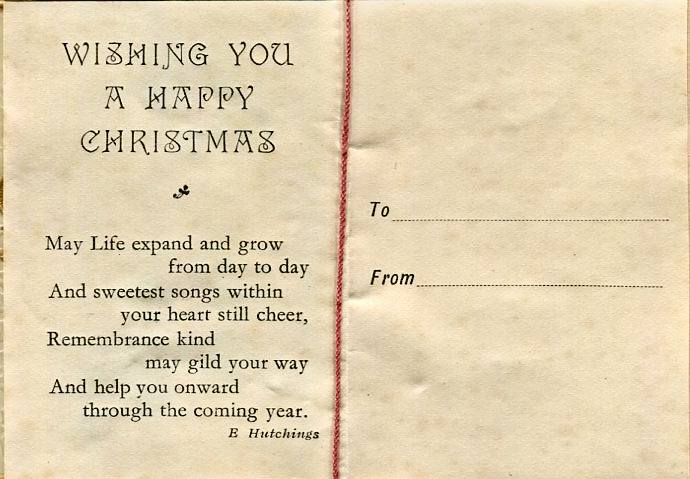 WISHING YOU
A HAPPY
CHRISTMAS
May Life expand and grow
from day to day
And sweetest songs within
your heart still cheer,
Remembrance kind
may gild your way
And help you onward
through the coming year.
E Hutchings
To
From